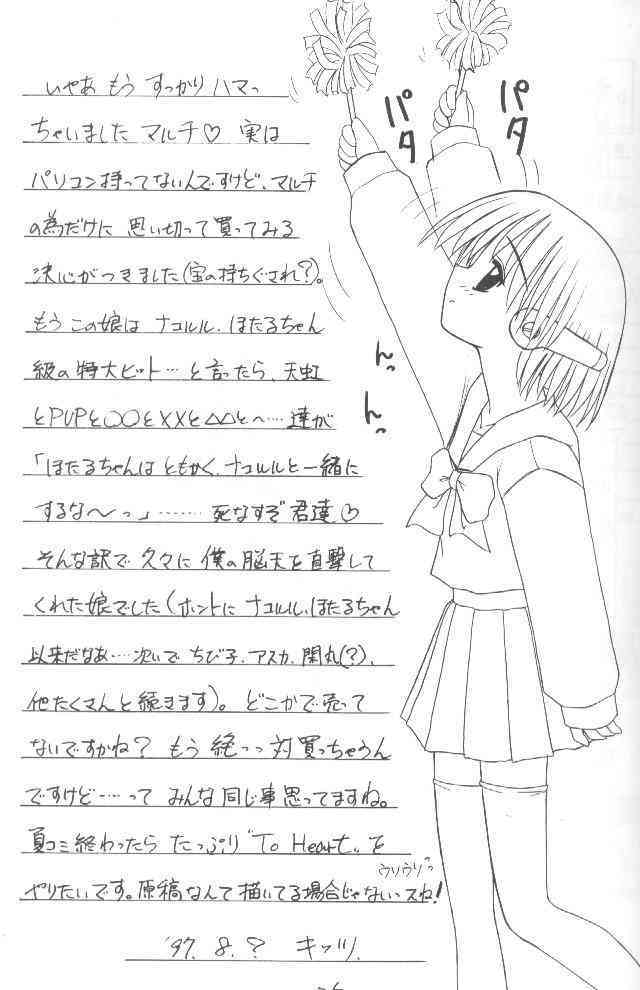 いやあ もう すっかり ハマっ
ちゃいました マルチ♡ 実は
パソコン持ってないんですけど、マルチ
の為だけに 思い切って買ってみる
決心がつきました(宝の持ちぐされ?)。
もう この娘は ナコルル、ほたるちゃん
級の特大ヒット…と言ったら、天虹
とPUPと○○と××と△△と〜…達が
「ほたるちゃんは ともかく、ナコルルと一緒に
するな〜っ」……… 死なすぞ 君達♡
そんな訳で 久々に 僕の脳天を直撃して
くれた娘でした(ホントに ナコルル、ほたるちゃん
以来だなあ…次いで ちび子、アスカ、蘭丸(?)、
他たくさんと続きます)。どこかで売って
ないですかね? もう 絶っっ対買っちゃうん
ですけど……って みんな同じ事思ってますね。
夏コミ終わったら たっぷり "To Heart" を
やりたいです。原稿なんて描いてる場合じゃないっスね!
ウリウリっ
'97. 8. ? キッツ
パタ
パタ
んっ
んっ